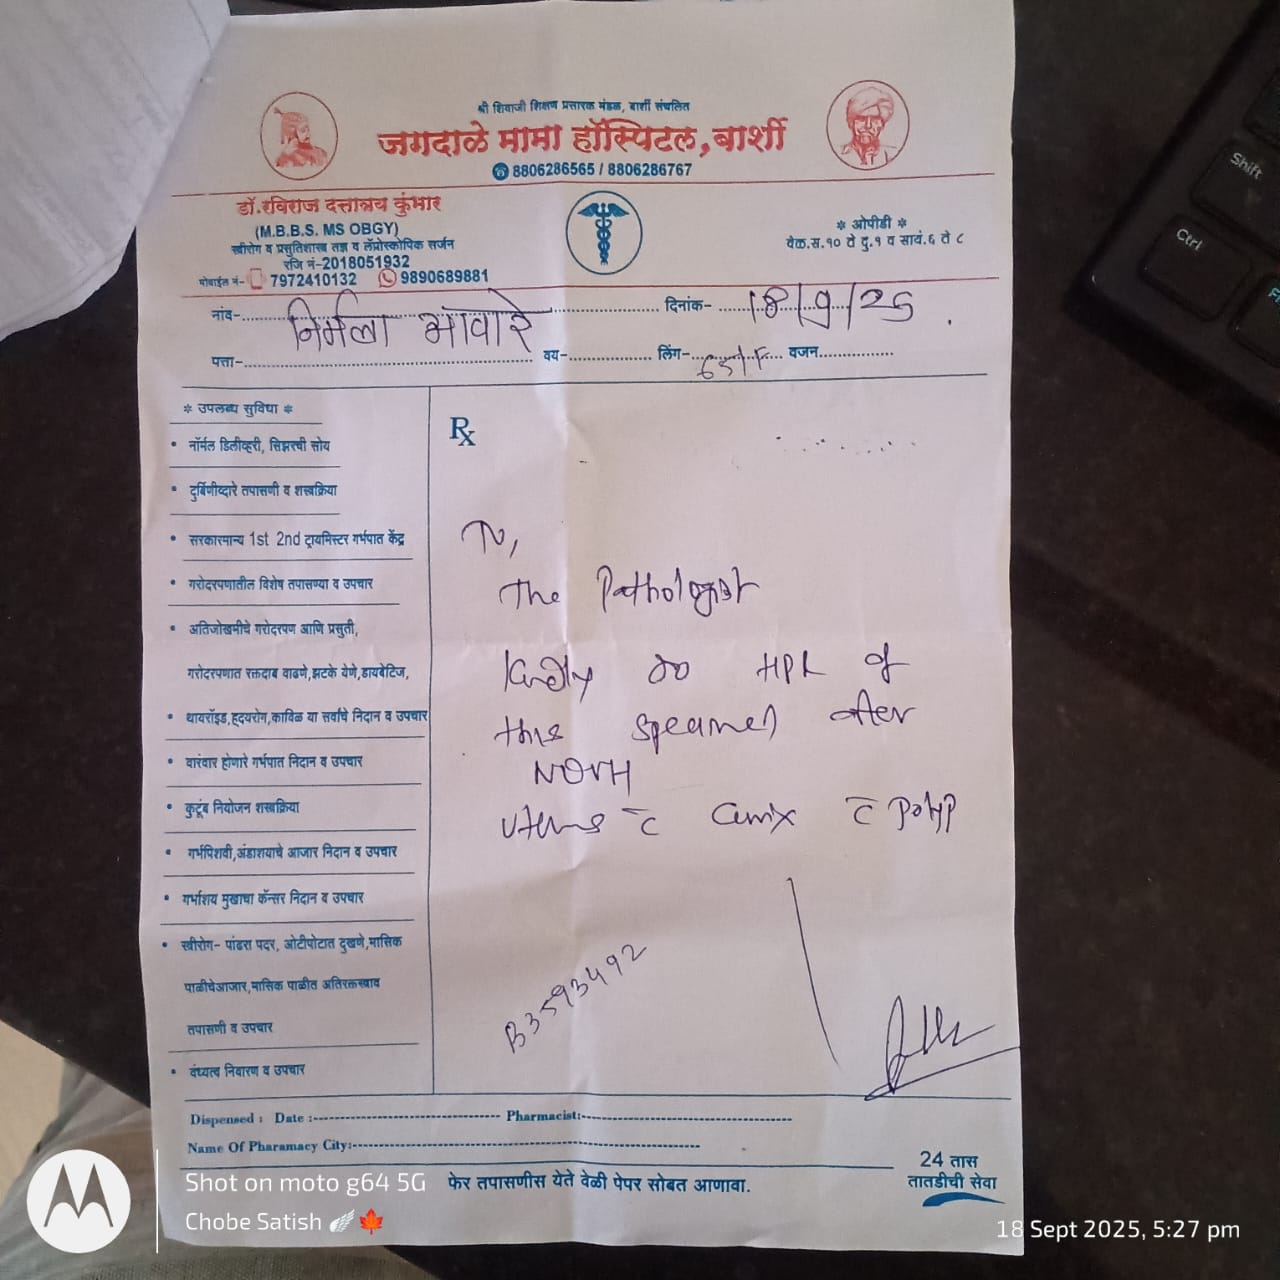 श्री शिवाजी शिक्षण प्रसारक मंडळ, बार्शी संचलित
जगदाळे मामा हॉस्पिटल,बार्शी
8806286565 / 8806286767
डॉ.रविराज दत्तात्रय कुंभार
(M.B.B.S. MS OBGY)
स्त्रीरोग व प्रसुतिशास्त्र तज्ञ व लॅप्रोस्कोपिक सर्जन
रजि नं-2018051932
मोबाईल नं- 7972410132 9890689881
* ओपीडी *
वेळ.स.१० ते दु.१ व सायं.६ ते ८
नांव- निर्मला भावारे दिनांक- 18/9/25
पत्ता- वय- लिंग- 65/F वजन
* उपलब्ध सुविधा *
नॉर्मल डिलीव्हरी, सिझरची सोय
दुर्बिणीव्दारे तपासणी व शस्त्रक्रिया
सरकारमान्य 1st 2nd ट्रायमिस्टर गर्भपात केंद्र
गरोदरपणातील विशेष तपासण्या व उपचार
अतिजोखमीचे गरोदरपण आणि प्रसुती,
गरोदरपणात रक्तदाब वाढणे,झटके येणे,डायबेटिज,
थायरॉइड,हृदयरोग,काविळ या सर्वांचे निदान व उपचार
वारंवार होणारे गर्भपात निदान व उपचार
कुटूंब नियोजन शस्त्रक्रिया
गर्भपिशवी,अंडाशयाचे आजार निदान व उपचार
गर्भाशय मुखाचा कॅन्सर निदान व उपचार
स्त्रीरोग- पांढरा पदर, ओटीपोटात दुखणे,मासिक
पाळीचेआजार,मासिक पाळीत अतिरक्तस्त्राव
तपासणी व उपचार
वंध्यत्व निवारण व उपचार
Rx
To,
The Pathologist
Kindly do HPR of
this specimen after
NDVH
Uterus c̄ Cervix c̄ Polyp
B3593492
Dispensed : Date : Pharmacist:
Name Of Pharamacy City:
फेर तपासणीस येते वेळी पेपर सोबत आणावा.
24 तास
तातडीची सेवा
Shift
Ctrl
Shot on moto g64 5G
Chobe Satish 🪽🍁
18 Sept 2025, 5:27 pm